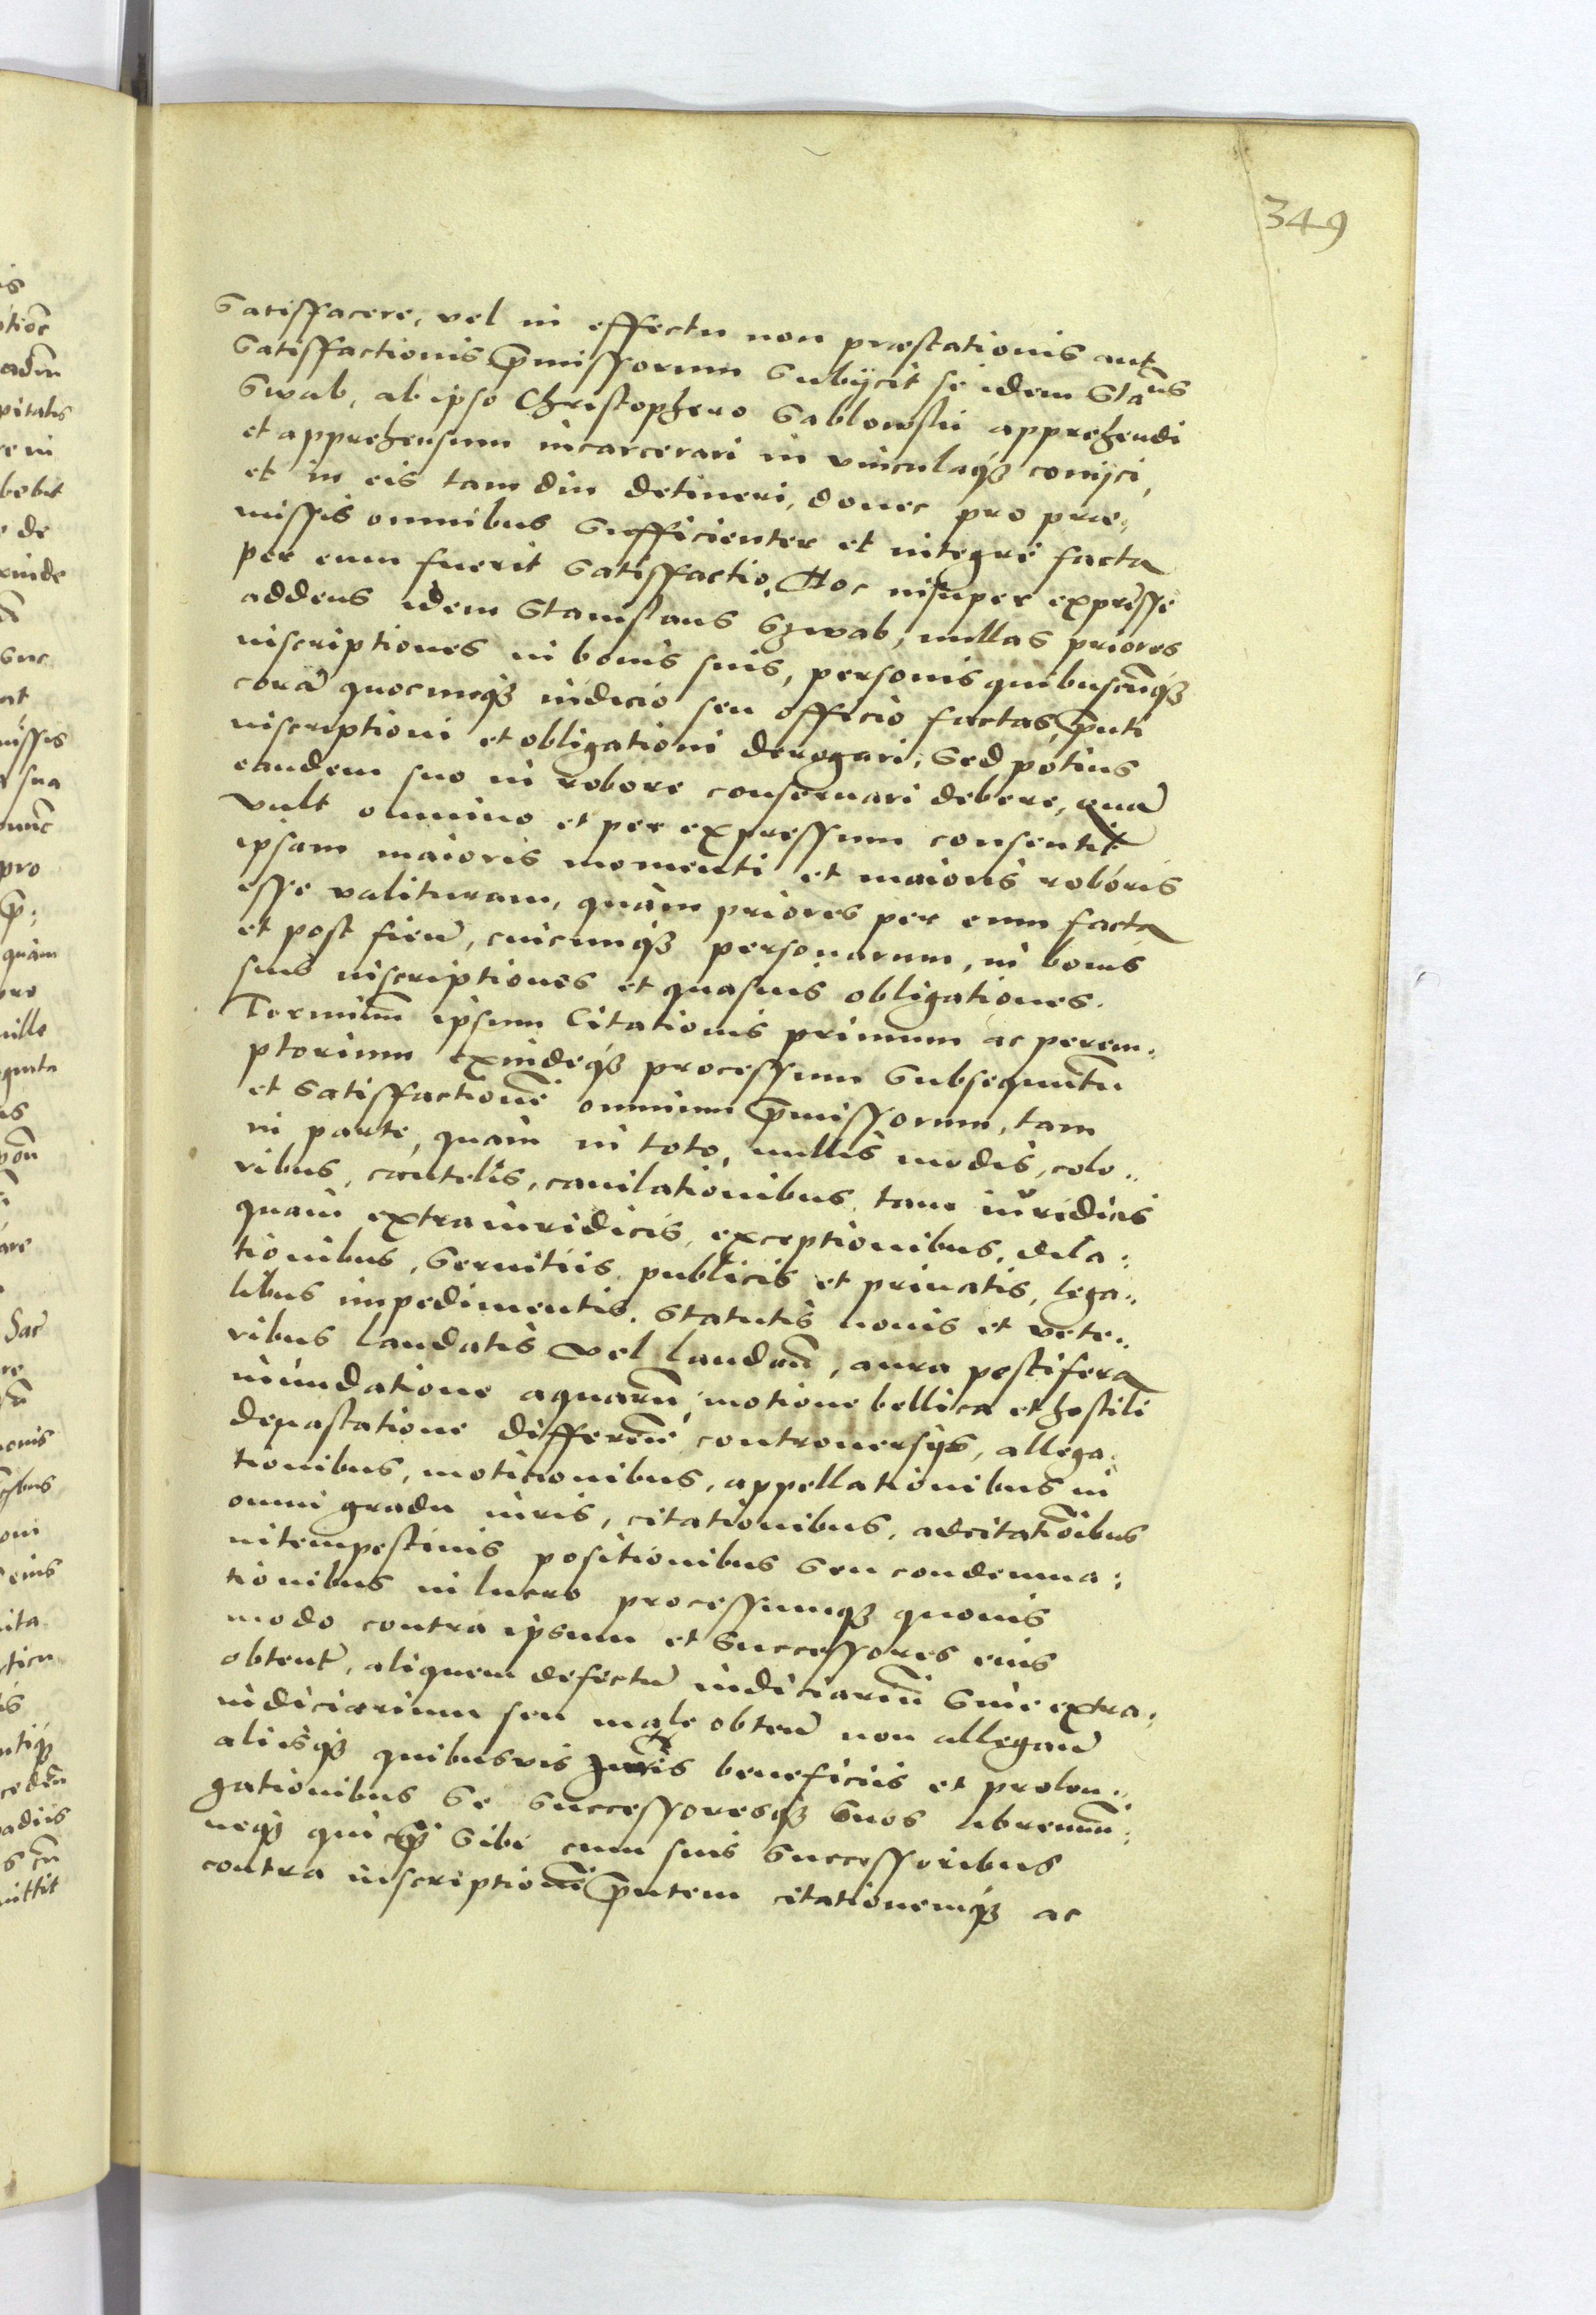 349
Satisfacere, vel in effectu non præstationis aut
Satisfactionis p̄missorum Subijcit se idem Sta͞us
Swab, ab ipso Christophero Sablowski apprehendi
et apprehensum incarcerari in vinculaqꝫ conijci,
et in eis tam diu detineri, donec pro præ:
missis omnibus Sufficienter et integrè facta
per eum fuerit Satisfactio. Hoc insuper expressè
addens idem Stanislaus Szwab, nullas priores
inscriptiones in bonis suis, personis quibuscūqꝫ
corā quocunqꝫ iudicio seu officio factas, p̄nti
inscriptioni et obligationi derogari, Sed potius
eandem suo in robore conseruari debere, quā
vult omnino et per expressum consentit
ipsam maioris momenti et maioris roboris
esse valituram, quàm priores per eum facta
et post fień, cuicunqꝫ personarum, in bonis
suis inscriptiones et quasuis obligationes.
Terminū ipsum Citationis primum ac perem:
ptorium exindeqꝫ processum Subsequutū
et Satisfactionē omnium p̄missorum, tam
in parte, quàm in toto, nullis modis, colo:
ribus, cautelis, cauilationibus, tam iuridicis
quàm extraiuridicis, exceptionibus, dila:
tionibus, Seruitiis publicis et priuatis, lega:
libus impedimentis, Statutis nouis et vete:
ribus laudatis vel laudań, aura pestifera
inundatione aquarū, motione bellica et hostili
deuastatione differendḗ controuersijs, allega:
tionibus, motionibus, appellationibus in
omni gradu iuris, citationibus, adcitatiōibus
intempestiuis positionibus Seu condemna:
tionibus in lucro processumqꝫ quouis
modo contra ipsum et Successores eius
obtent̄, aliquem defectū iudiciariū Siue extra:
iudiciarium seu male obteń non allegań
aliisqꝫ quibusvis Juris beneficiis et prolon:
gationibus Se Successoresqꝫ Suos libremū:
neqꝫ quicq̄ Sibi cum suis Successoribus
contra inscriptionē p̄ntem citationemqꝫ ac